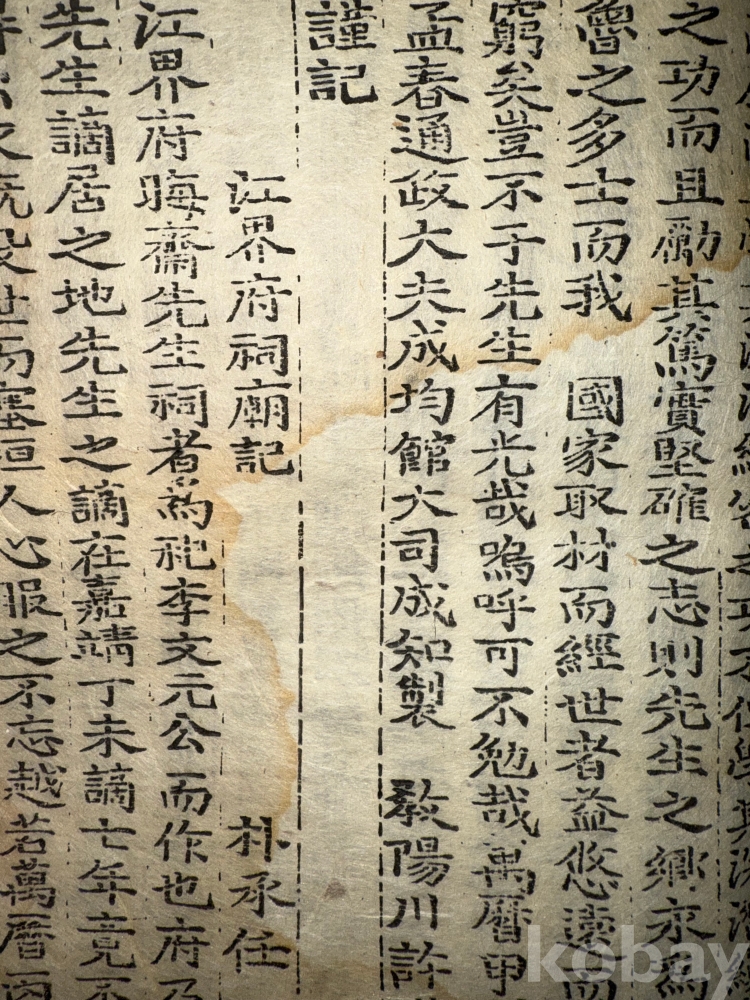 之功而且勵其篤實堅確之志則先生之鄉永爲
魯之多士而我 國家取材而經世者益悠遠而
窮矣豈不于先生有光哉嗚呼可不勉哉萬曆甲
孟春通政大夫成均館大司成知製 敎陽川許
謹記
江界府祠廟記 朴承任
江界府晦齋先生祠者爲祀李文元公而作也府乃
先生謫居之地先生之謫在嘉靖丁未謫七年竟不
世而塞垣人心服之不忘越若萬曆丙
kobay